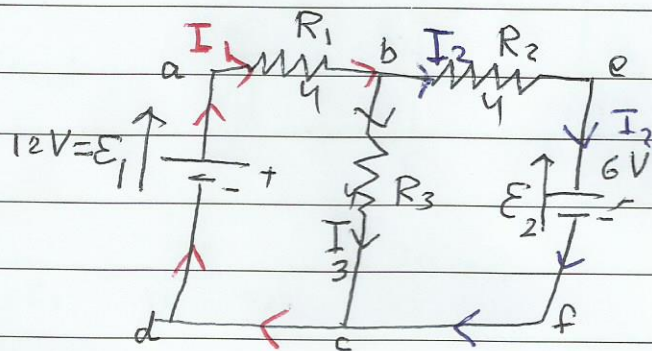 I₁ R₁ I₂ R₂
a b e
4 4
I₂
12V=Ɛ₁ 6V
- + 4 R₃ Ɛ₂ -
I₃
d c f